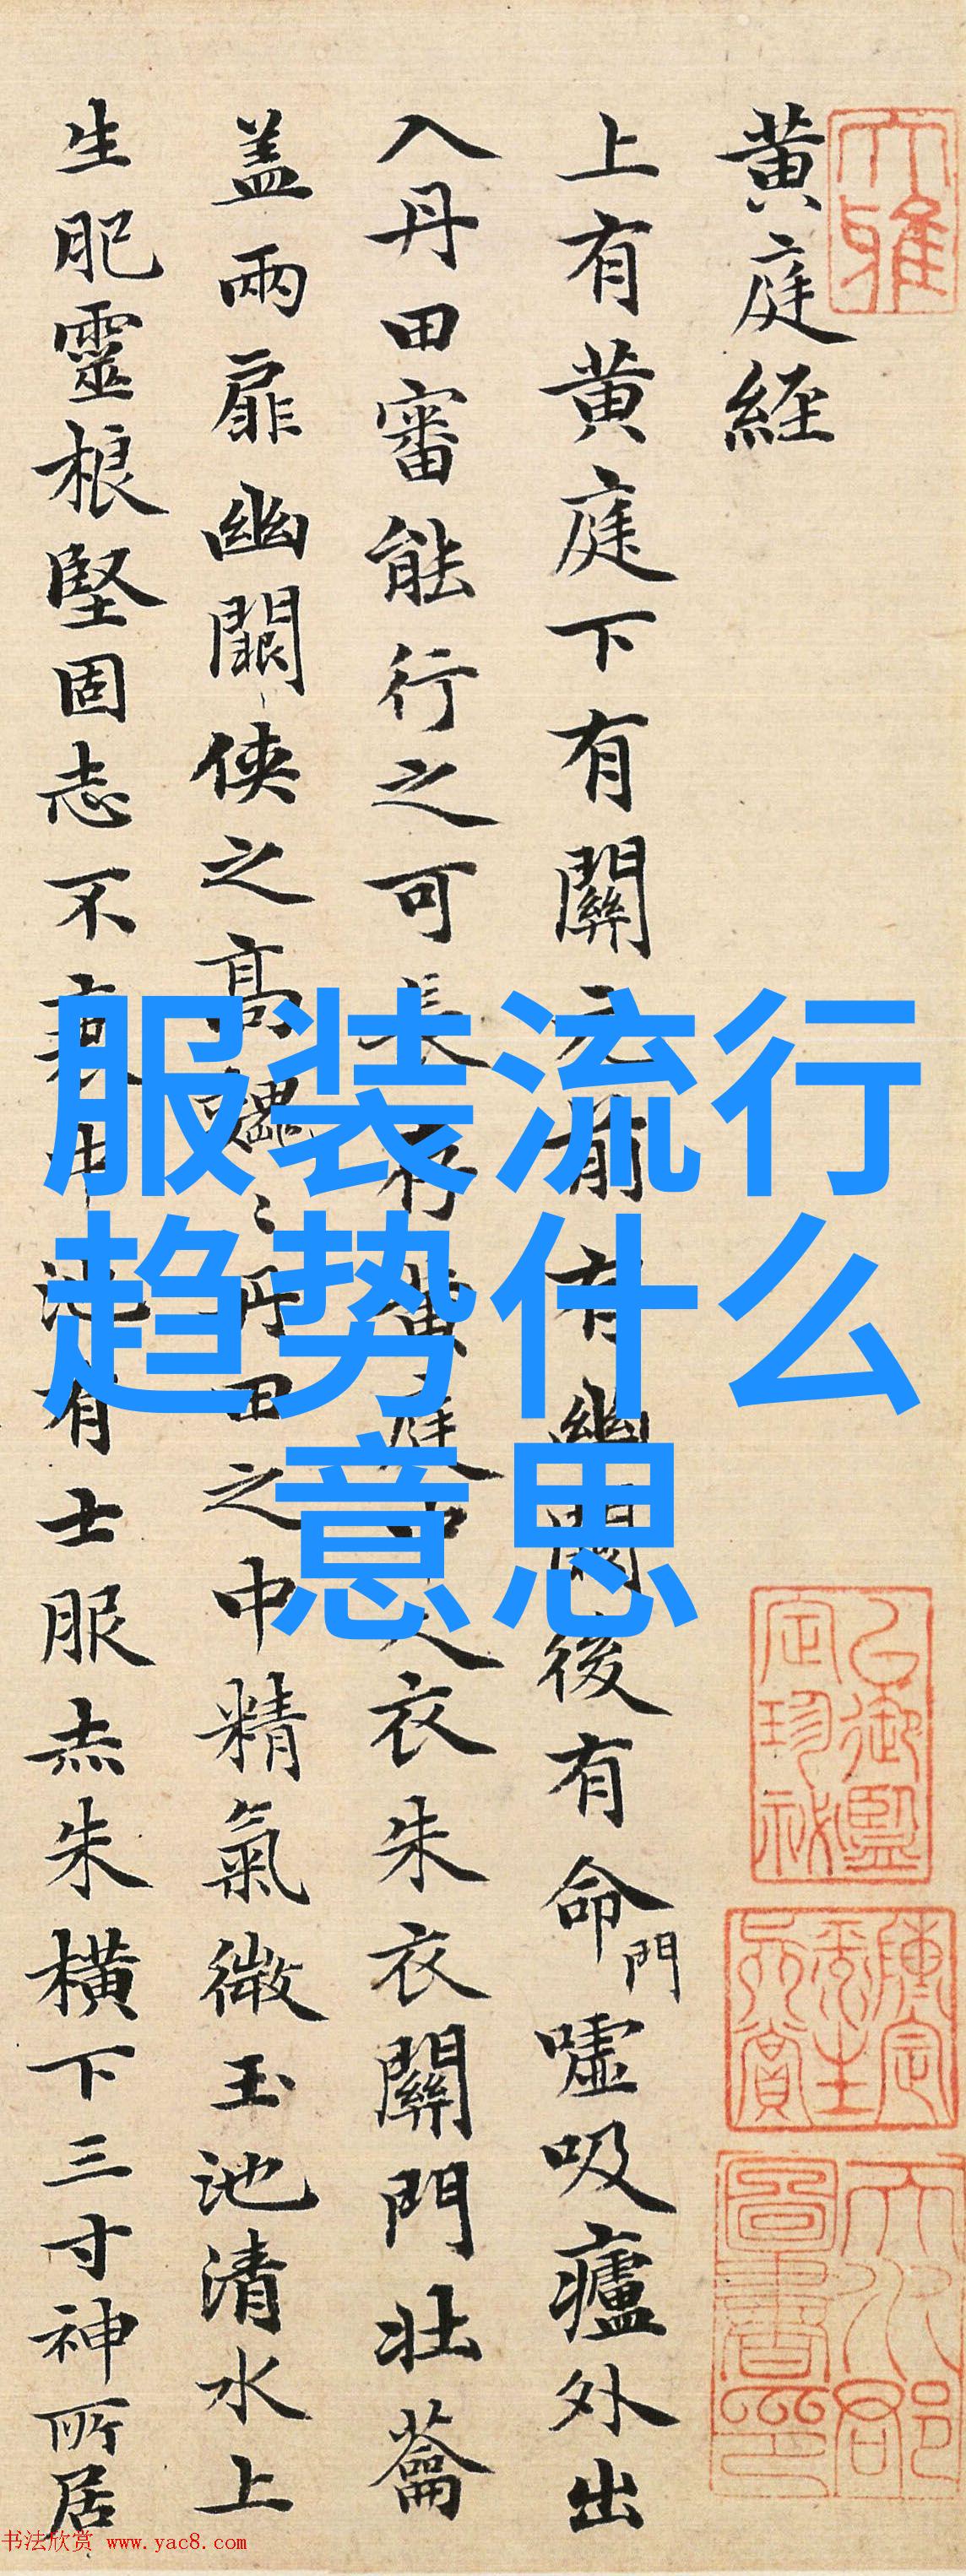 黄庭經
上有黄庭下有關元前有幽闕後有命門嘘吸廬外出
入丹田審能行之可長存黄庭中人衣朱衣關門壯蘥
盖兩扉幽闕侠之高巍〻丹田之中精氣微玉池清水上
生肥靈根堅固志不衰中池有士服赤朱横下三寸神所居
大雅
服装流行
趋势什么
意思
书法欣赏 www.yac8.com